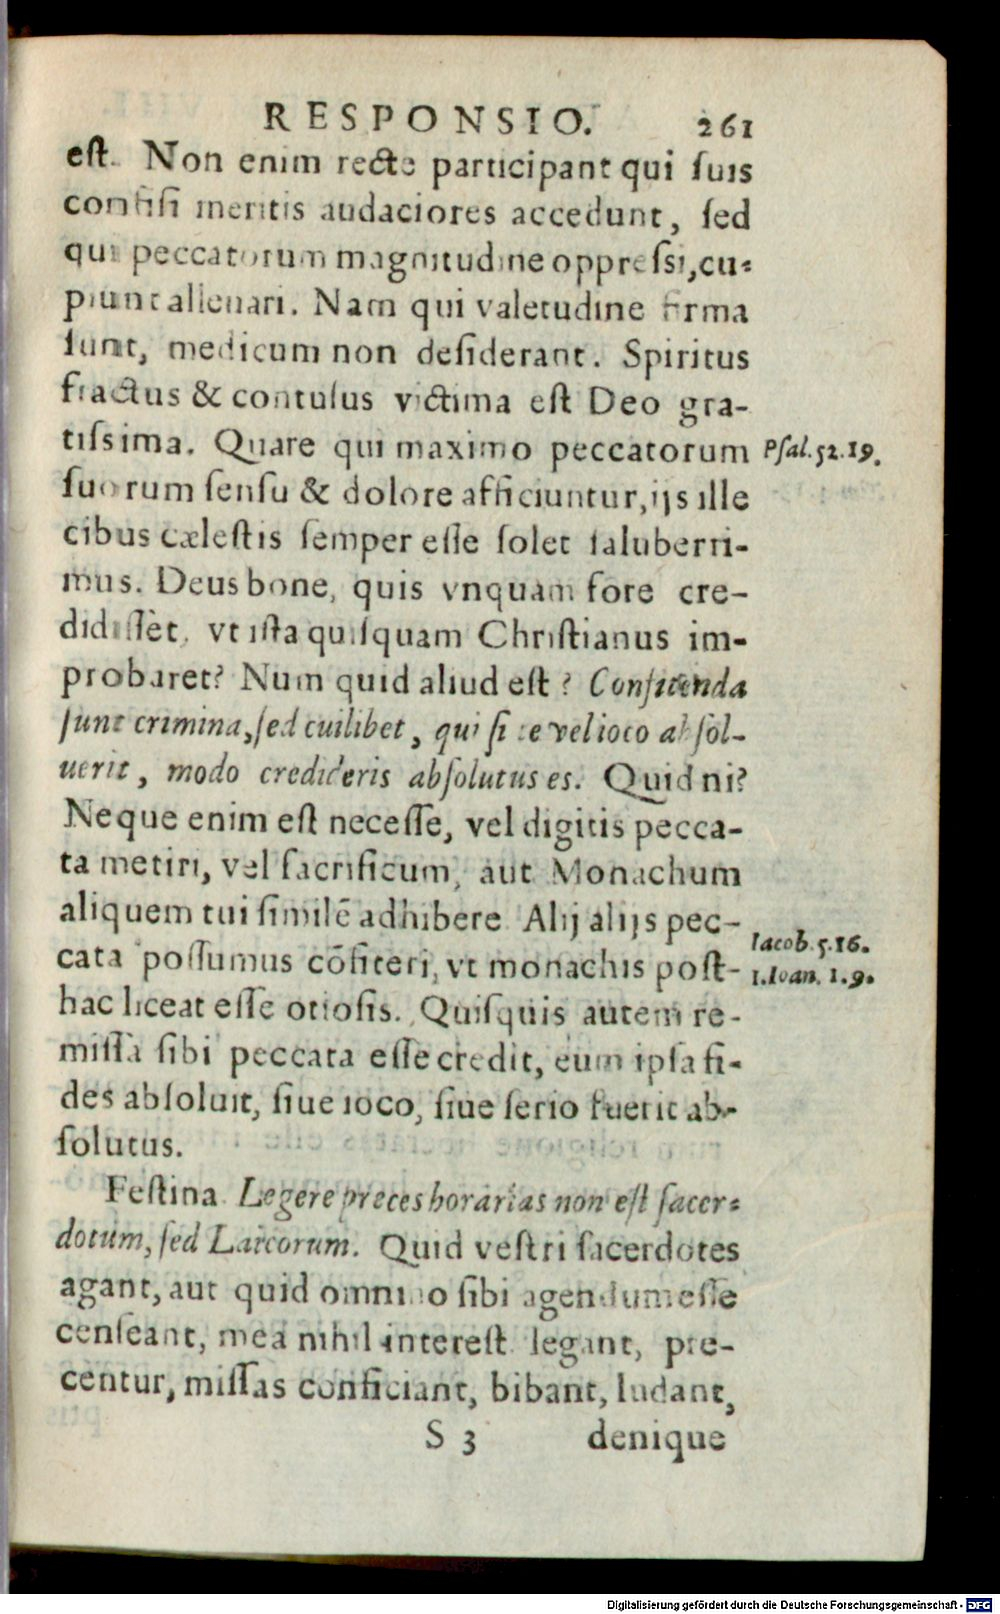 RESPONSIO. 261
est. Non enim recte participant qui ſuis
confiſi meritis audaciores accedunt, ſed
qui peccatorum magnitudine oppreſsi, cu-
piunt alleuari. Nam qui valetudine firma
ſunt, medicum non deſiderant. Spiritus
fractus & contuſus victima eſt Deo gra-
tiſsima. Quare qui maximo peccatorum
Pſal. 52.19.
ſuorum ſenſu & dolore afficiuntur, ijs ille
cibus cæleſtis ſemper eſſe ſolet ſaluberri-
mus. Deus bone, quis vnquam fore cre-
didiſſet, vt iſta quiſquam Chriſtianus im-
probaret? Num quid aliud eſt? Confitenda
ſunt crimina, ſed cuilibet, qui ſi te vel ioco abſol-
uerit, modo credideris abſolutus es. Quid ni?
Neque enim eſt neceſſe, vel digitis pecca-
ta metiri, vel ſacrificum, aut Monachum
aliquem tui ſimilē adhibere. Alij alijs pec-
Iacob. 5.16.
cata poſſumus cōfiteri, vt monachis poſt-
1. Ioan. 1.9.
hac liceat eſſe otioſis. Quiſquis autem re-
miſſa ſibi peccata eſſe credit, eum ipſa fi-
des abſoluit, ſiue ioco, ſiue ſerio fuerit ab-
ſolutus.
Feſtina. Legere preces horarias non eſt ſacer-
dotum, ſed Laicorum. Quid veſtri ſacerdotes
agant, aut quid omnino ſibi agendum eſſe
cenſeant, mea nihil intereſt. legant, pre-
centur, miſſas conficiant, bibant, ludant,
S 3 denique
Digitalisierung gefördert durch die Deutsche Forschungsgemeinschaft - DFG